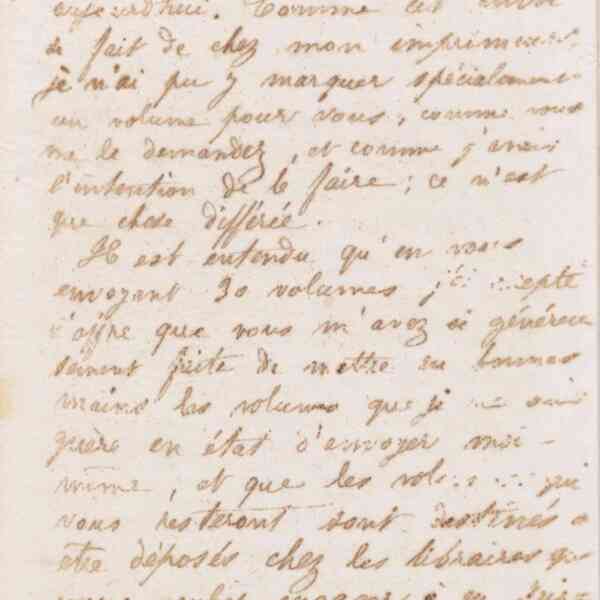 aujourd'hui. Comme cet envoi
se fait de chez mon imprimeur
je n'ai pu y marquer spécialement
un volume pour vous, comme vous
me le demandez, et comme j'avais
l'intention de le faire ; ce n'est
que chose différée.
Il est entendu qu'en vous
envoyant 30 volumes j'accepte
l'offre que vous m'avez si généreu
sement faite de mettre en bonnes
mains les volumes que je ne suis
guère en état d'envoyer moi-
même, et que les vol qui
vous resteront sont destinés à
être déposés chez les libraires que
vous